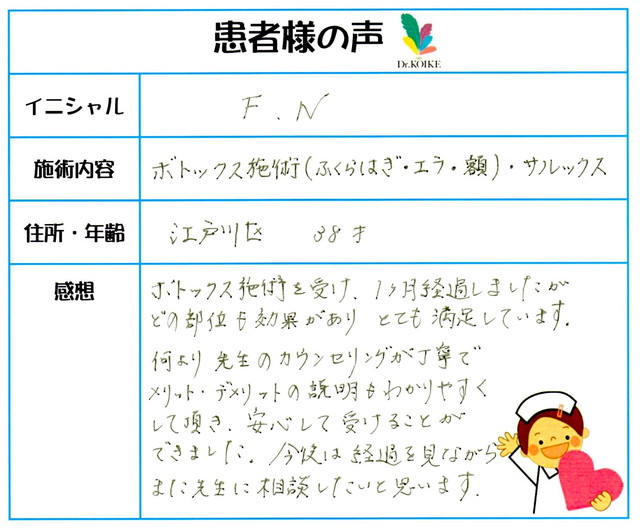 患者様の声
Dr.KOIKE
イニシャル
F.N
施術内容
ボトックス施術(ふくらはぎ・エラ・額)・サルックス
住所・年齢
江戸川区 38才
感想
ボトックス施術を受け、1ヶ月経過しましたが
どの部位も効果がありとても満足しています。
何より先生のカウンセリングが丁寧で
メリット・デメリットの説明もわかりやすく
して頂き、安心して受けることが
できました。今後は経過を見ながら
また先生に相談したいと思います。